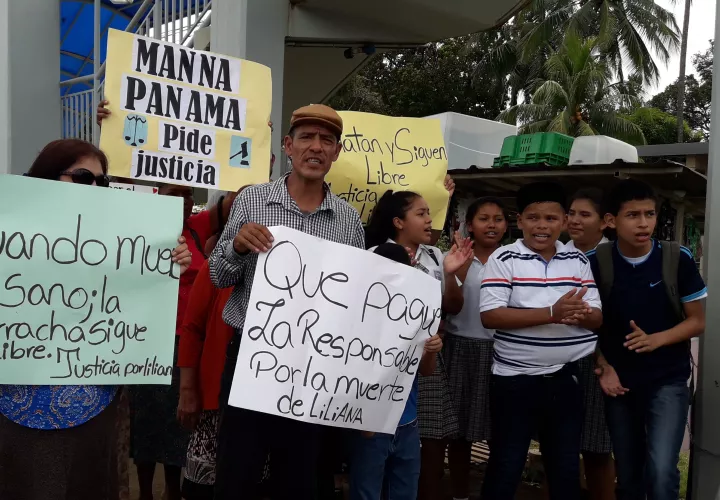 MANNA
PANAMA
Pide
justicia
atan y Siguen
Libre
justicia
uando mue
Sano, la
rracha sigue
ibre. Justicia por lilian
Que pague
La Responsable
Por la muerte
de LiLiANA